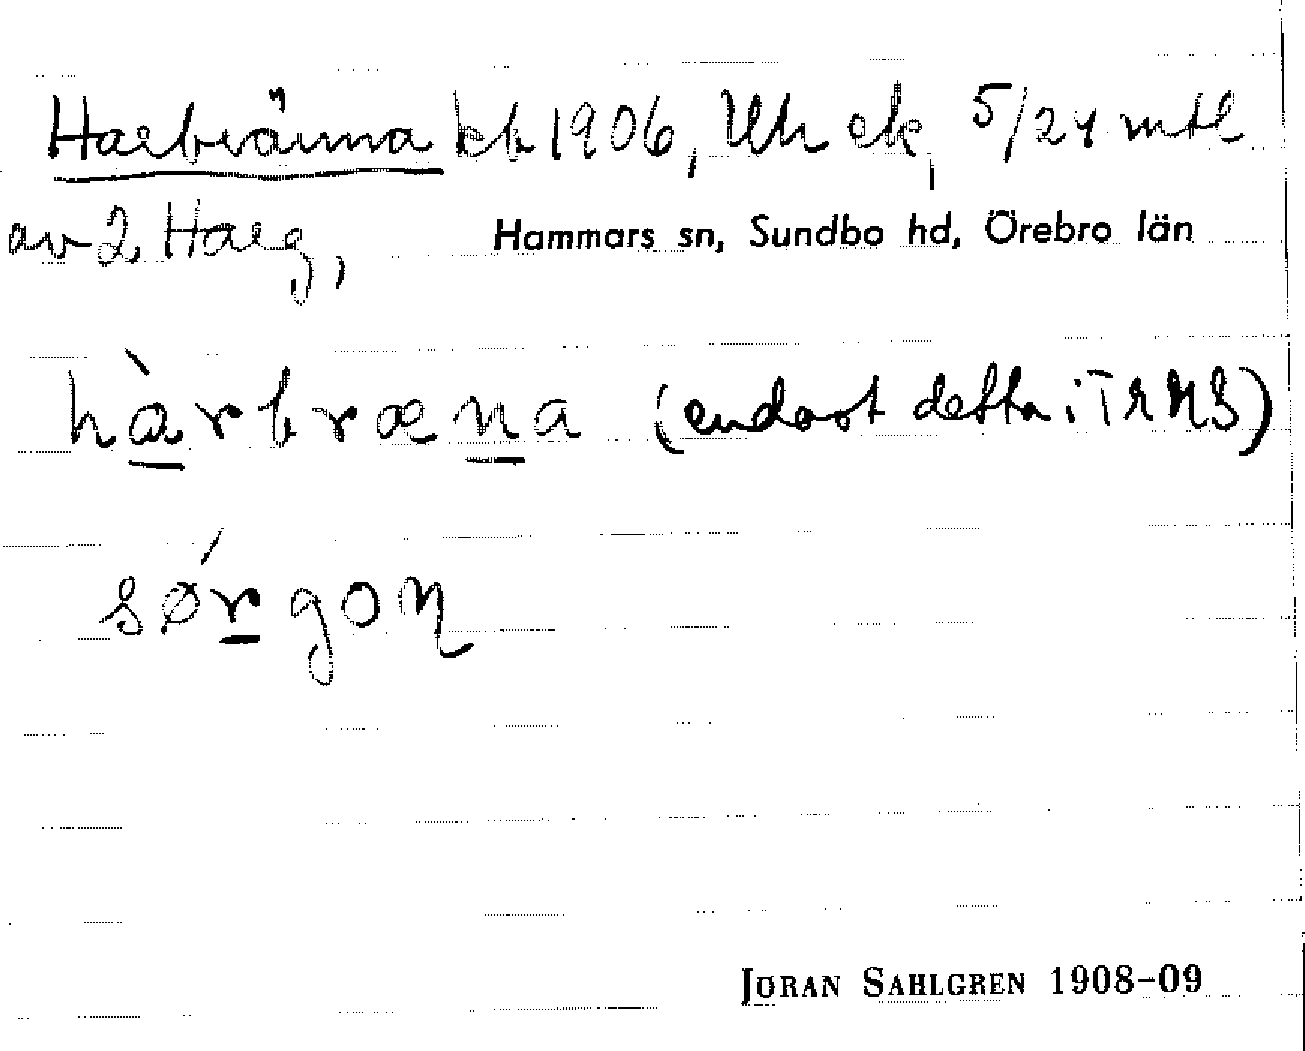 Harbränna kb 1906, Uh ek, 5/24 mtl
av 2 Harg, Hammars sn, Sundbo hd, Örebro län
hàrbræna (endast detta i T RMS)
sǿrgoɳ
JÖRAN SAHLGREN 1908–09